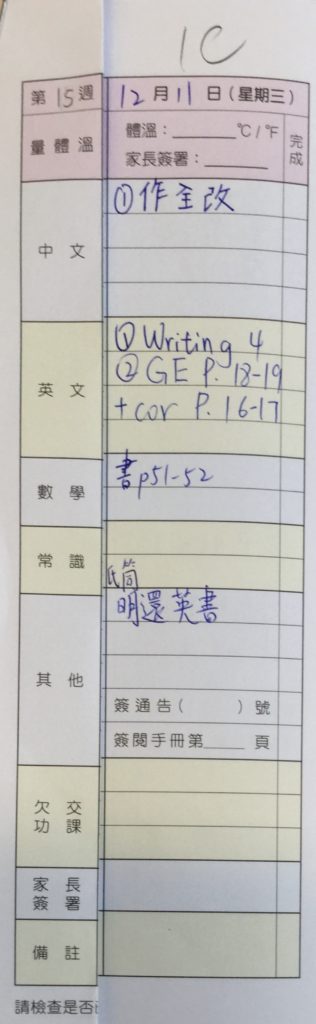 1C
第15週 12月11日(星期三)
量體溫 體溫：______℃/℉ 完成
家長簽署：______
中文 ①作至改
英文 ①Writing 4
②GE P. 18-19
+cor P. 16-17
數學 書p51-52
常識
氏筒
其他 明還英書
簽通告( )號
簽閱手冊第____頁
欠交功課
家長簽署
備註
請檢查是否